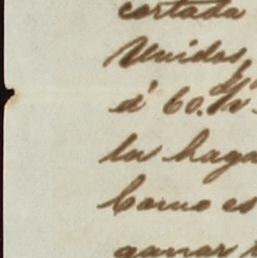 cortada
Unidos,
á 60.
la haga
Como es
ganar